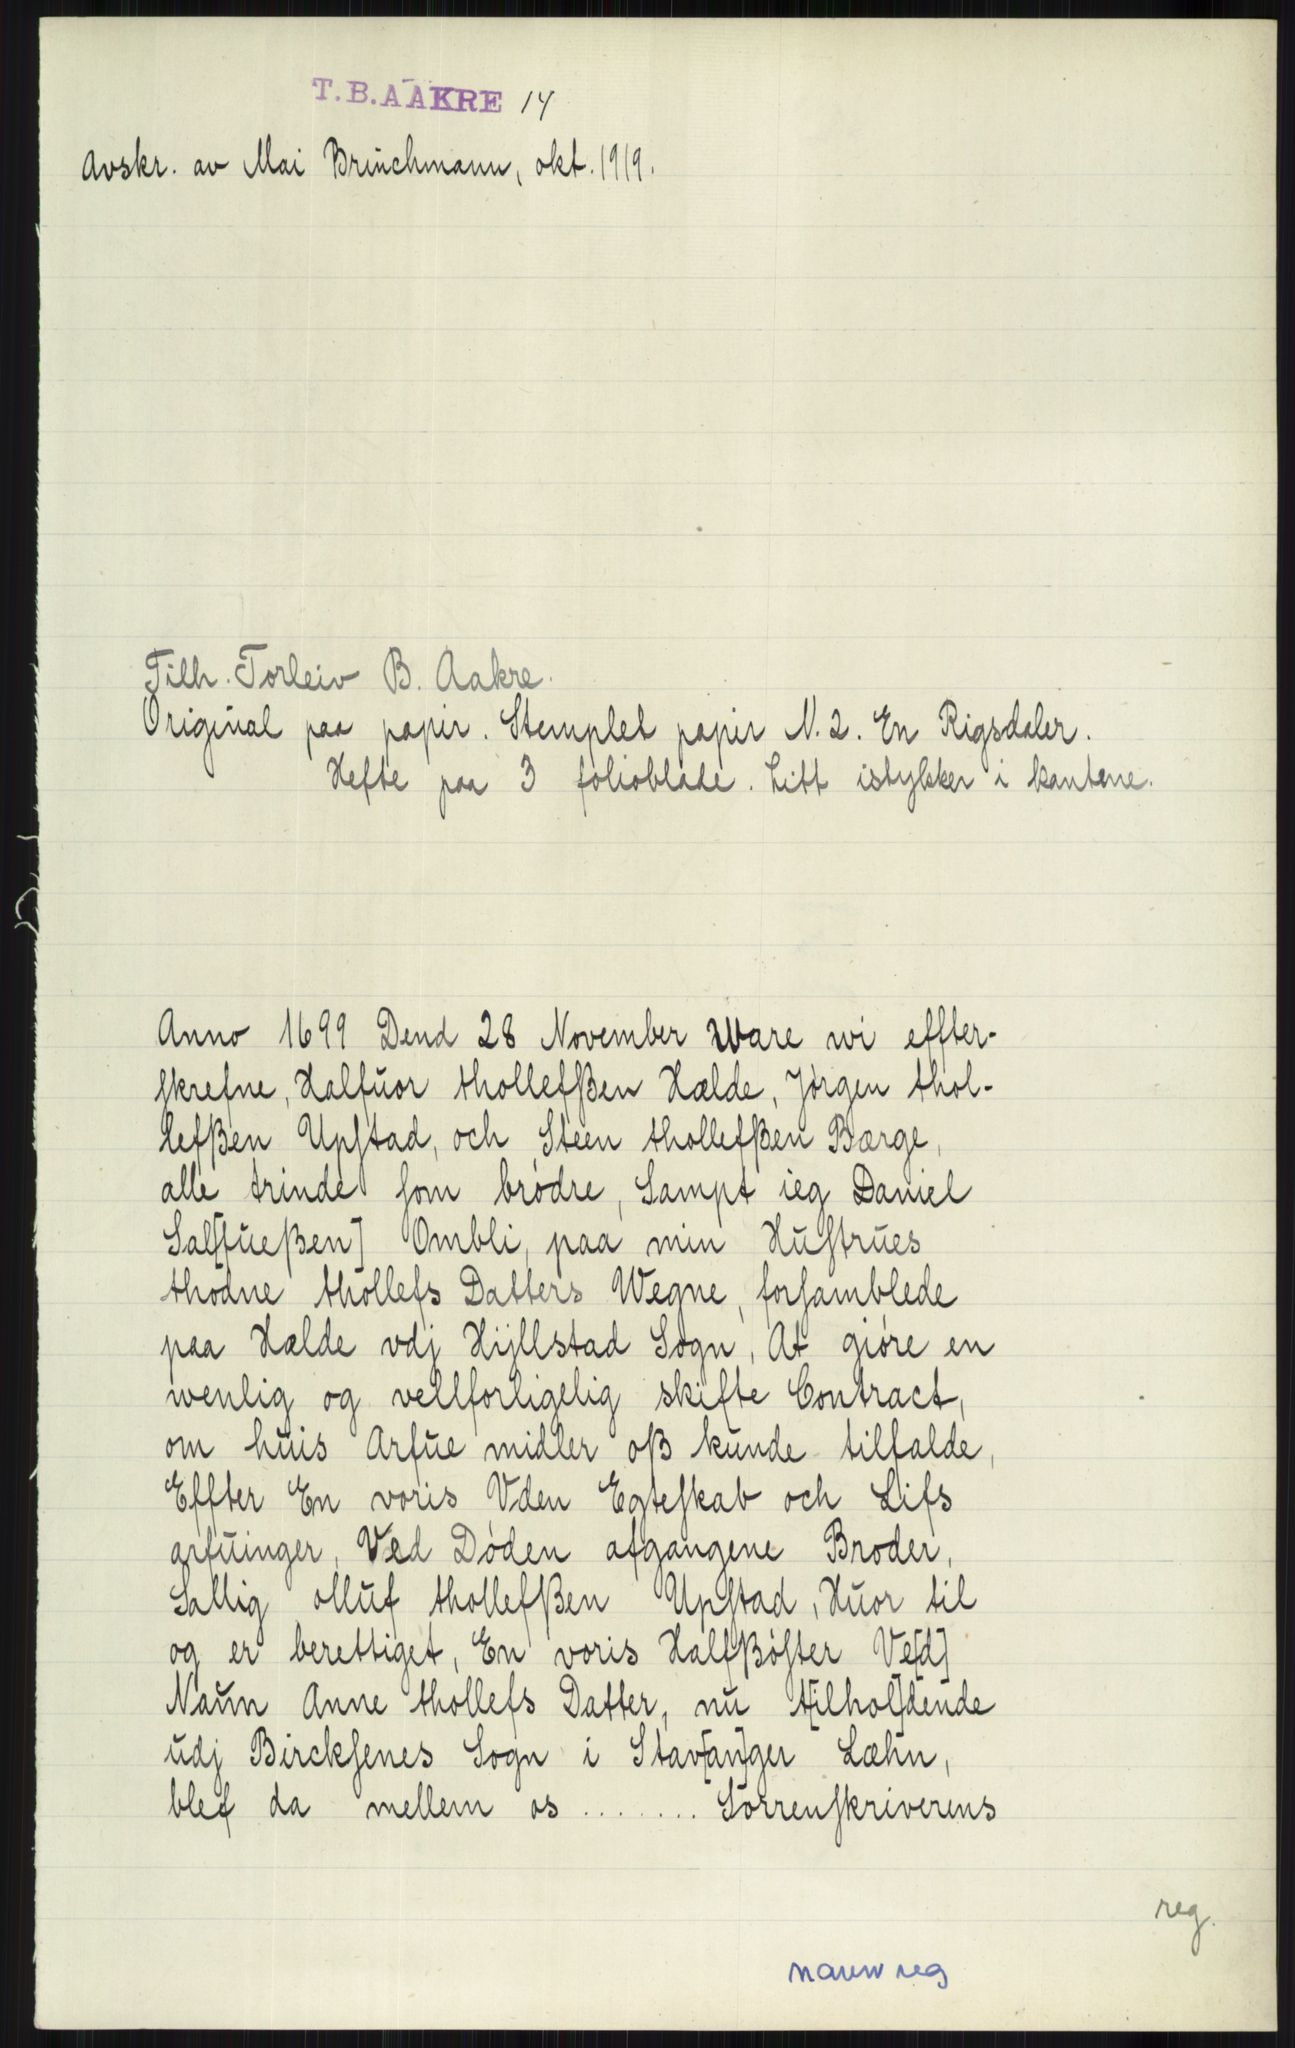 T.B.AAKRE 14
Avskr. av Mai Brinchmann, okt. 1919.
Tilh. Torleiv B. Aakre.
Original paa papir. Stemplet papir N. 2. En Rigsdaler.
Hefte paa 3 folioblade. Litt istykker i kantene.
Anno 1699 Dend 28 November Ware wi effter-
skrefne, Halfuor thollefßen Hælde, Jørgen thol-
lefßen Upstad, och Steen thollefßen Bærge,
alle trinde som brødre, Sampt ieg Daniel
Sal[fueßen] Ombli, paa min Hustrues
thodne thollefs Datters Wegne, forsamblede
paa Hælde vdj Hijllstad Sogn, At giøre en
wenlig og vellforligelig skifte Contract,
om huis Arfue midler oß kunde tilfalde,
Effter En voris Uden Egteskab och Lifs
arfuinger, Ved Døden afgangene Broder,
Sallig olluf thollefßen Upstad, Huor til
og er berettiget, En voris Halfßøster Ve[d]
Naun Anne thollefs Datter, nu t[ilhol]dende
udj Bircksenes Sogn i Stav[an]ger Læhn,
blef da mellem os ....... Sorrenskriverens
reg.
navnreg